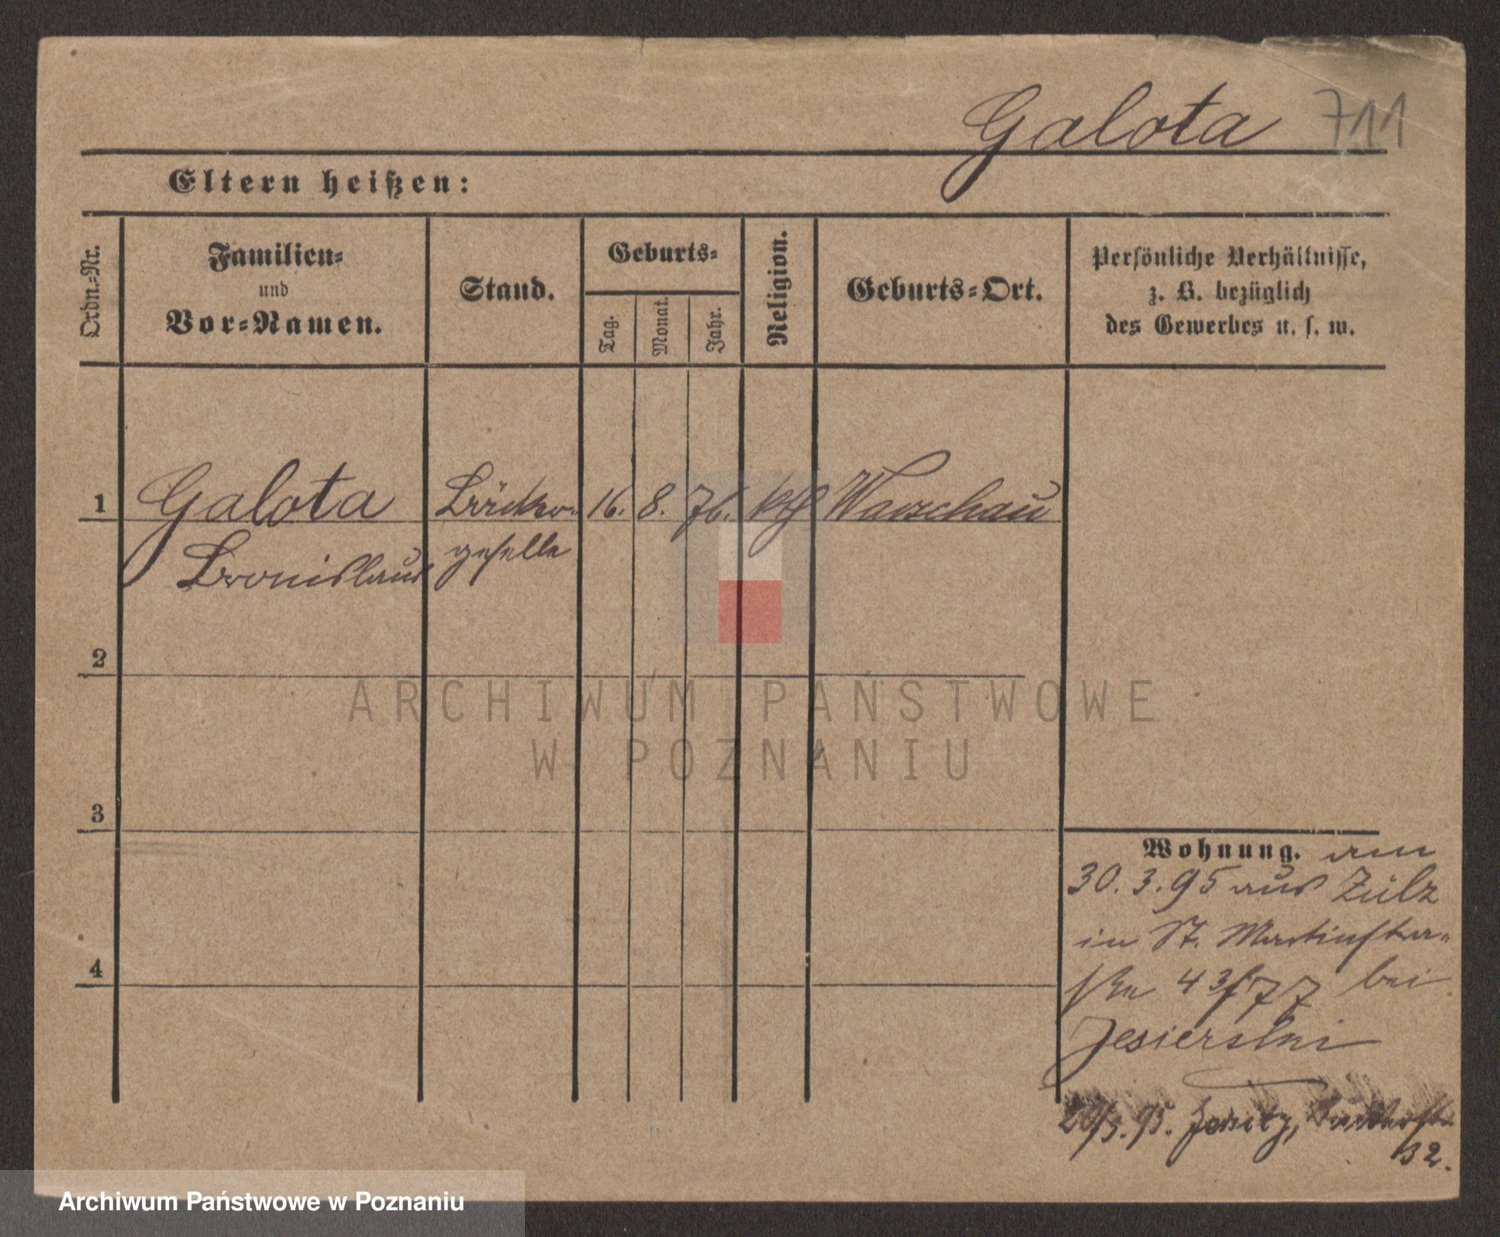 Galota 711
Eltern heißen:
Ordn.-Nr.
Familien-
und
Vor-Namen.
Stand.
Geburts-
Tag.
Monat.
Jahr.
Religion.
Geburts-Ort.
Persönliche Verhältnisse,
z. B. bezüglich
des Gewerbes u. s. w.
1 Galota Bäcker- 16. 8. 76. kth Warschau
Bronislaus geselle
2
3
4
Wohnung. am
30.3.95 aus Zülz
in St. Martinstra-
ße 43 bei
Jesierski
20/5. 95. Jersitz,
32.
ARCHIWUM PAŃSTWOWE
W POZNANIU
Archiwum Państwowe w Poznaniu